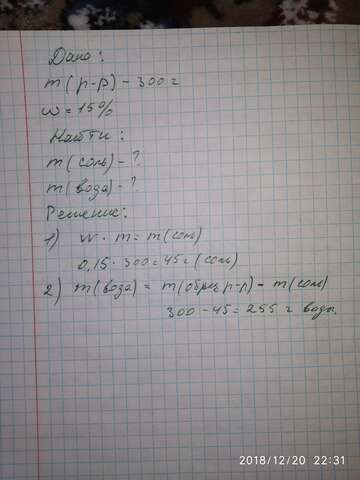 Дано:
m(р-р) - 300 г
w = 15%
Найти:
m(соль) - ?
m(вода) - ?
Решение:
1) w · m = m(соли)
0,15 · 300 = 45 г (соли)
2) m(вода) = m(общ р-р) - m(соли)
300 - 45 = 255 г воды
2018/12/20 22:31